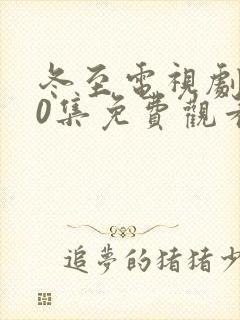 冬至電視劇
0集免費觀看
追夢的猪猪少